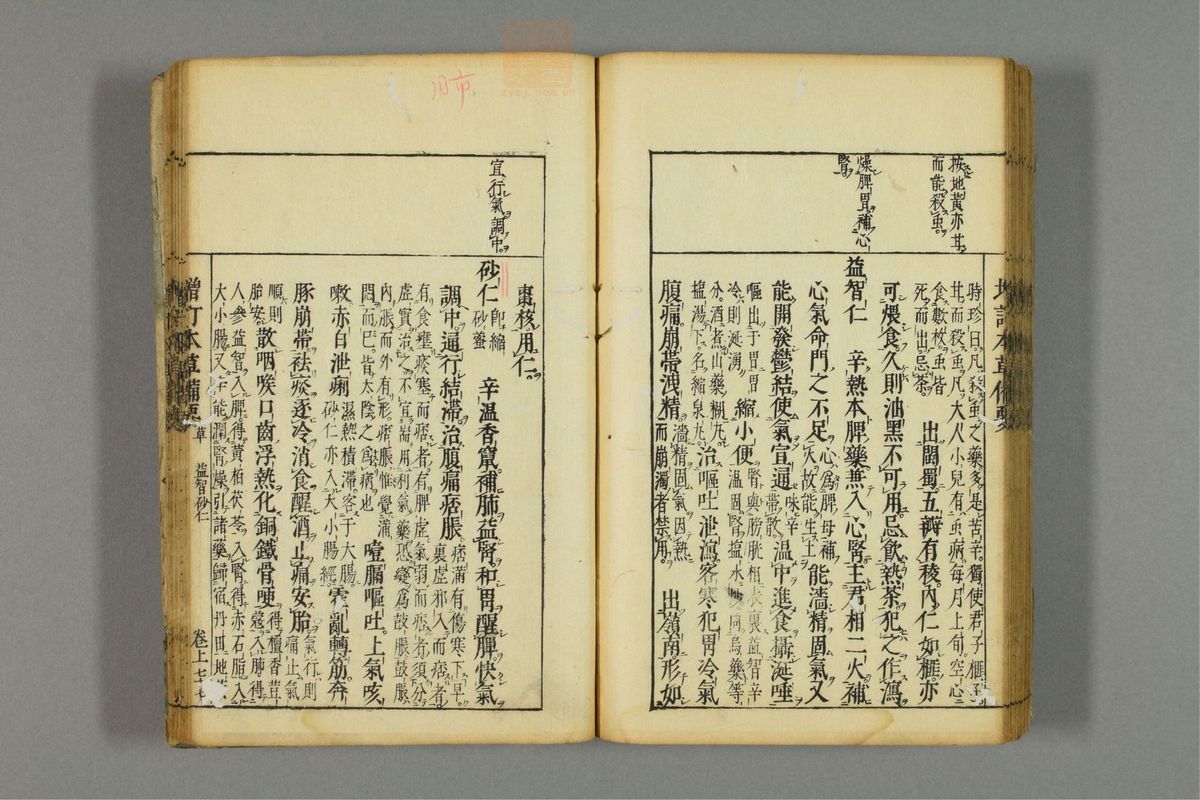 增訂本草備要
按地黃亦甘
而能殺虫。
燥脾胃補心
腎
時珍曰。凡殺虫之藥多是苦辛。獨使君子榧子
甘而殺虫。凡大人小兒有虫病每月上旬。空心
食數枚。虫皆
死而出。忌茶。
出閩蜀五瓣有稜。內仁如榧亦
可煨食。久則油黑不可用。忌飲熱茶。犯之作瀉
益智仁 辛熱本脾藥兼入心腎。主君相二火。補
心氣命門之不足。
心爲脾母補
火故能生土
能濇精固氣。又
能開發鬱結。使氣宣通。
味辛
帶散
溫中進食。攝涎唾
嘔出于胃胃
冷則涎湧
縮小便
腎與膀胱相表裏益智辛
溫固腎塩水炒同烏藥等
分。酒煮山藥糊丸。
塩湯下。名縮泉丸。
治嘔吐泄瀉。客寒犯胃。冷氣
腹痛。崩帶洩精
濇精固氣因熱
而崩濁者禁用。
出嶺南形如
宜行氣調中。
棗核用仁。
砂仁
即縮
砂蔤
辛溫香竄。補肺益腎。和胃醒脾。快氣
調中。通行結滯。治腹痛痞脹。
痞滿有傷寒下早。
裏虛邪入而痞者
有食壅痰塞而痞者有脾虛氣弱而痞者須分
虛實治之不宜耑用利氣藥恐變爲鼓脹鼓脹
內脹而外有形。痞脹惟覺滿
悶而已。皆太陰之爲病也
噎膈嘔吐。上氣咳
嗽赤白泄痢
濕熱積滯。客于大腸。
砂仁亦入大小腸經。
霍亂轉筋。奔
豚崩帶。祛痰逐冷。消食醒酒。止痛安胎
氣行則
痛止氣
順則
胎安
散咽喉口齒浮熱。化銅鐵骨哽
得檀香荳
蔻入肺得
人參益智入脾得黃柏茯苓入腎。得赤石脂入
大小腸。又能潤腎燥引諸藥歸宿丹田地
增訂本草備要 草 益智砂仁 卷上
川市
zysj.com.cn